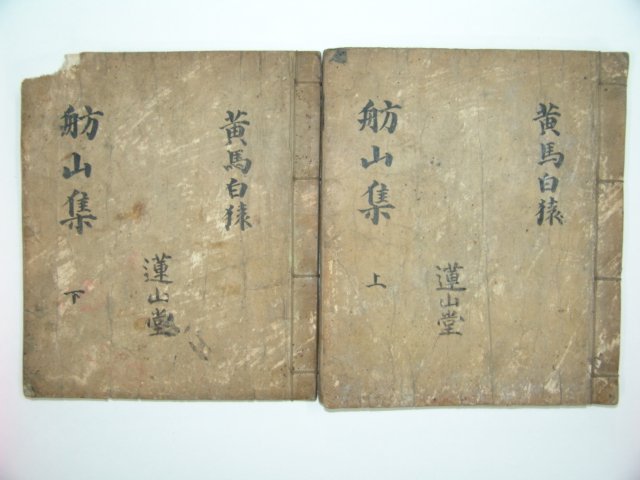 黃馬白猿
舫山集
上
蓮山堂
黃馬白猿
舫山集
下
蓮山堂